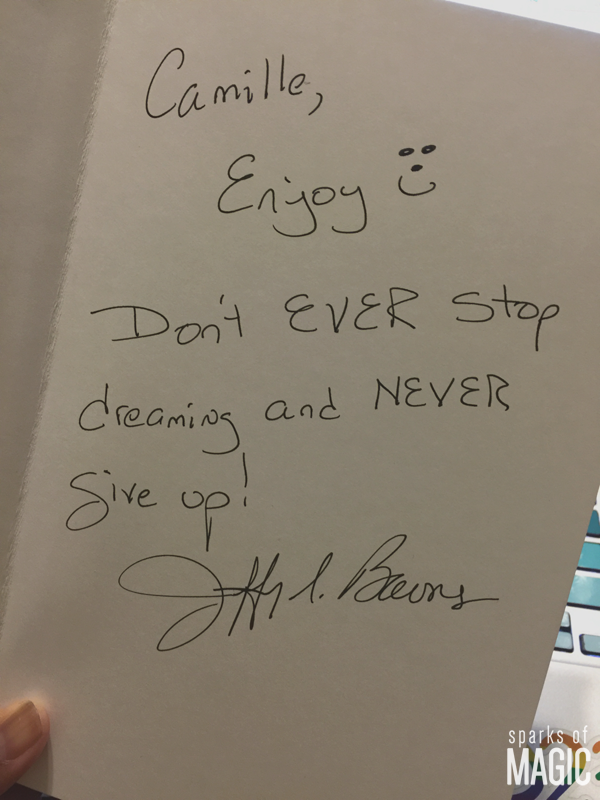 Camille,
Enjoy
Don't EVER Stop
dreaming and NEVER
give up!
sparks of
MAGIC